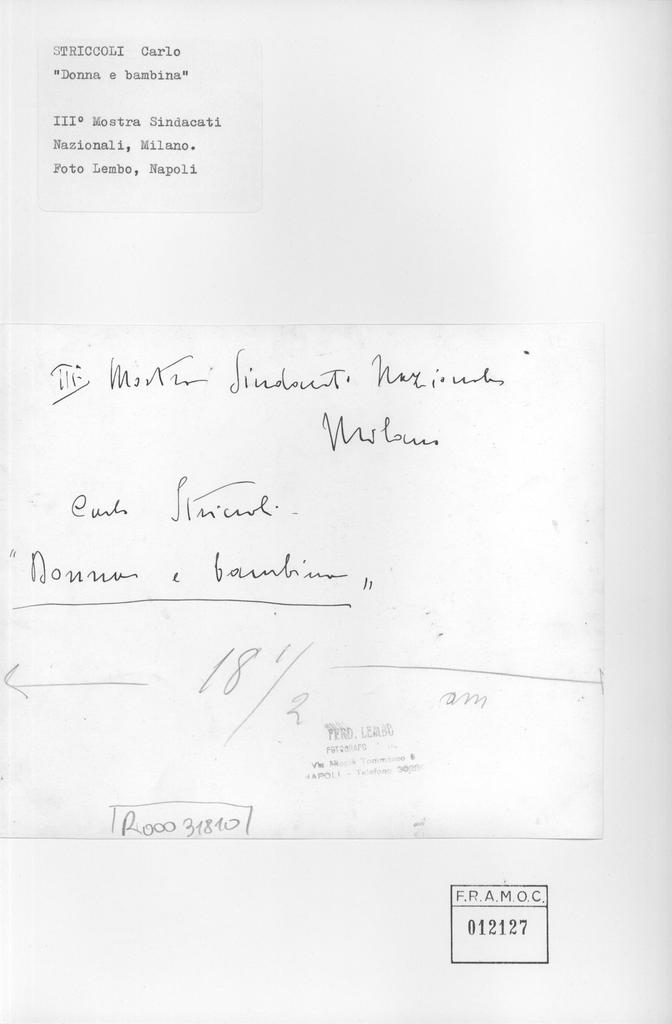 STRICCOLI Carlo
"Donna e bambina"
III° Mostra Sindacati
Nazionali, Milano.
Foto Lembo, Napoli
III Mostra Sindacati Nazionali
Milano
Carlo Striccoli
"Donna e bambina"
18 1/2
FERD. LEMBO
FOTOGRAFO
Via Tommaseo 6
NAPOLI - Telefono
R000 31810
F.R.A.M.O.C.
012127